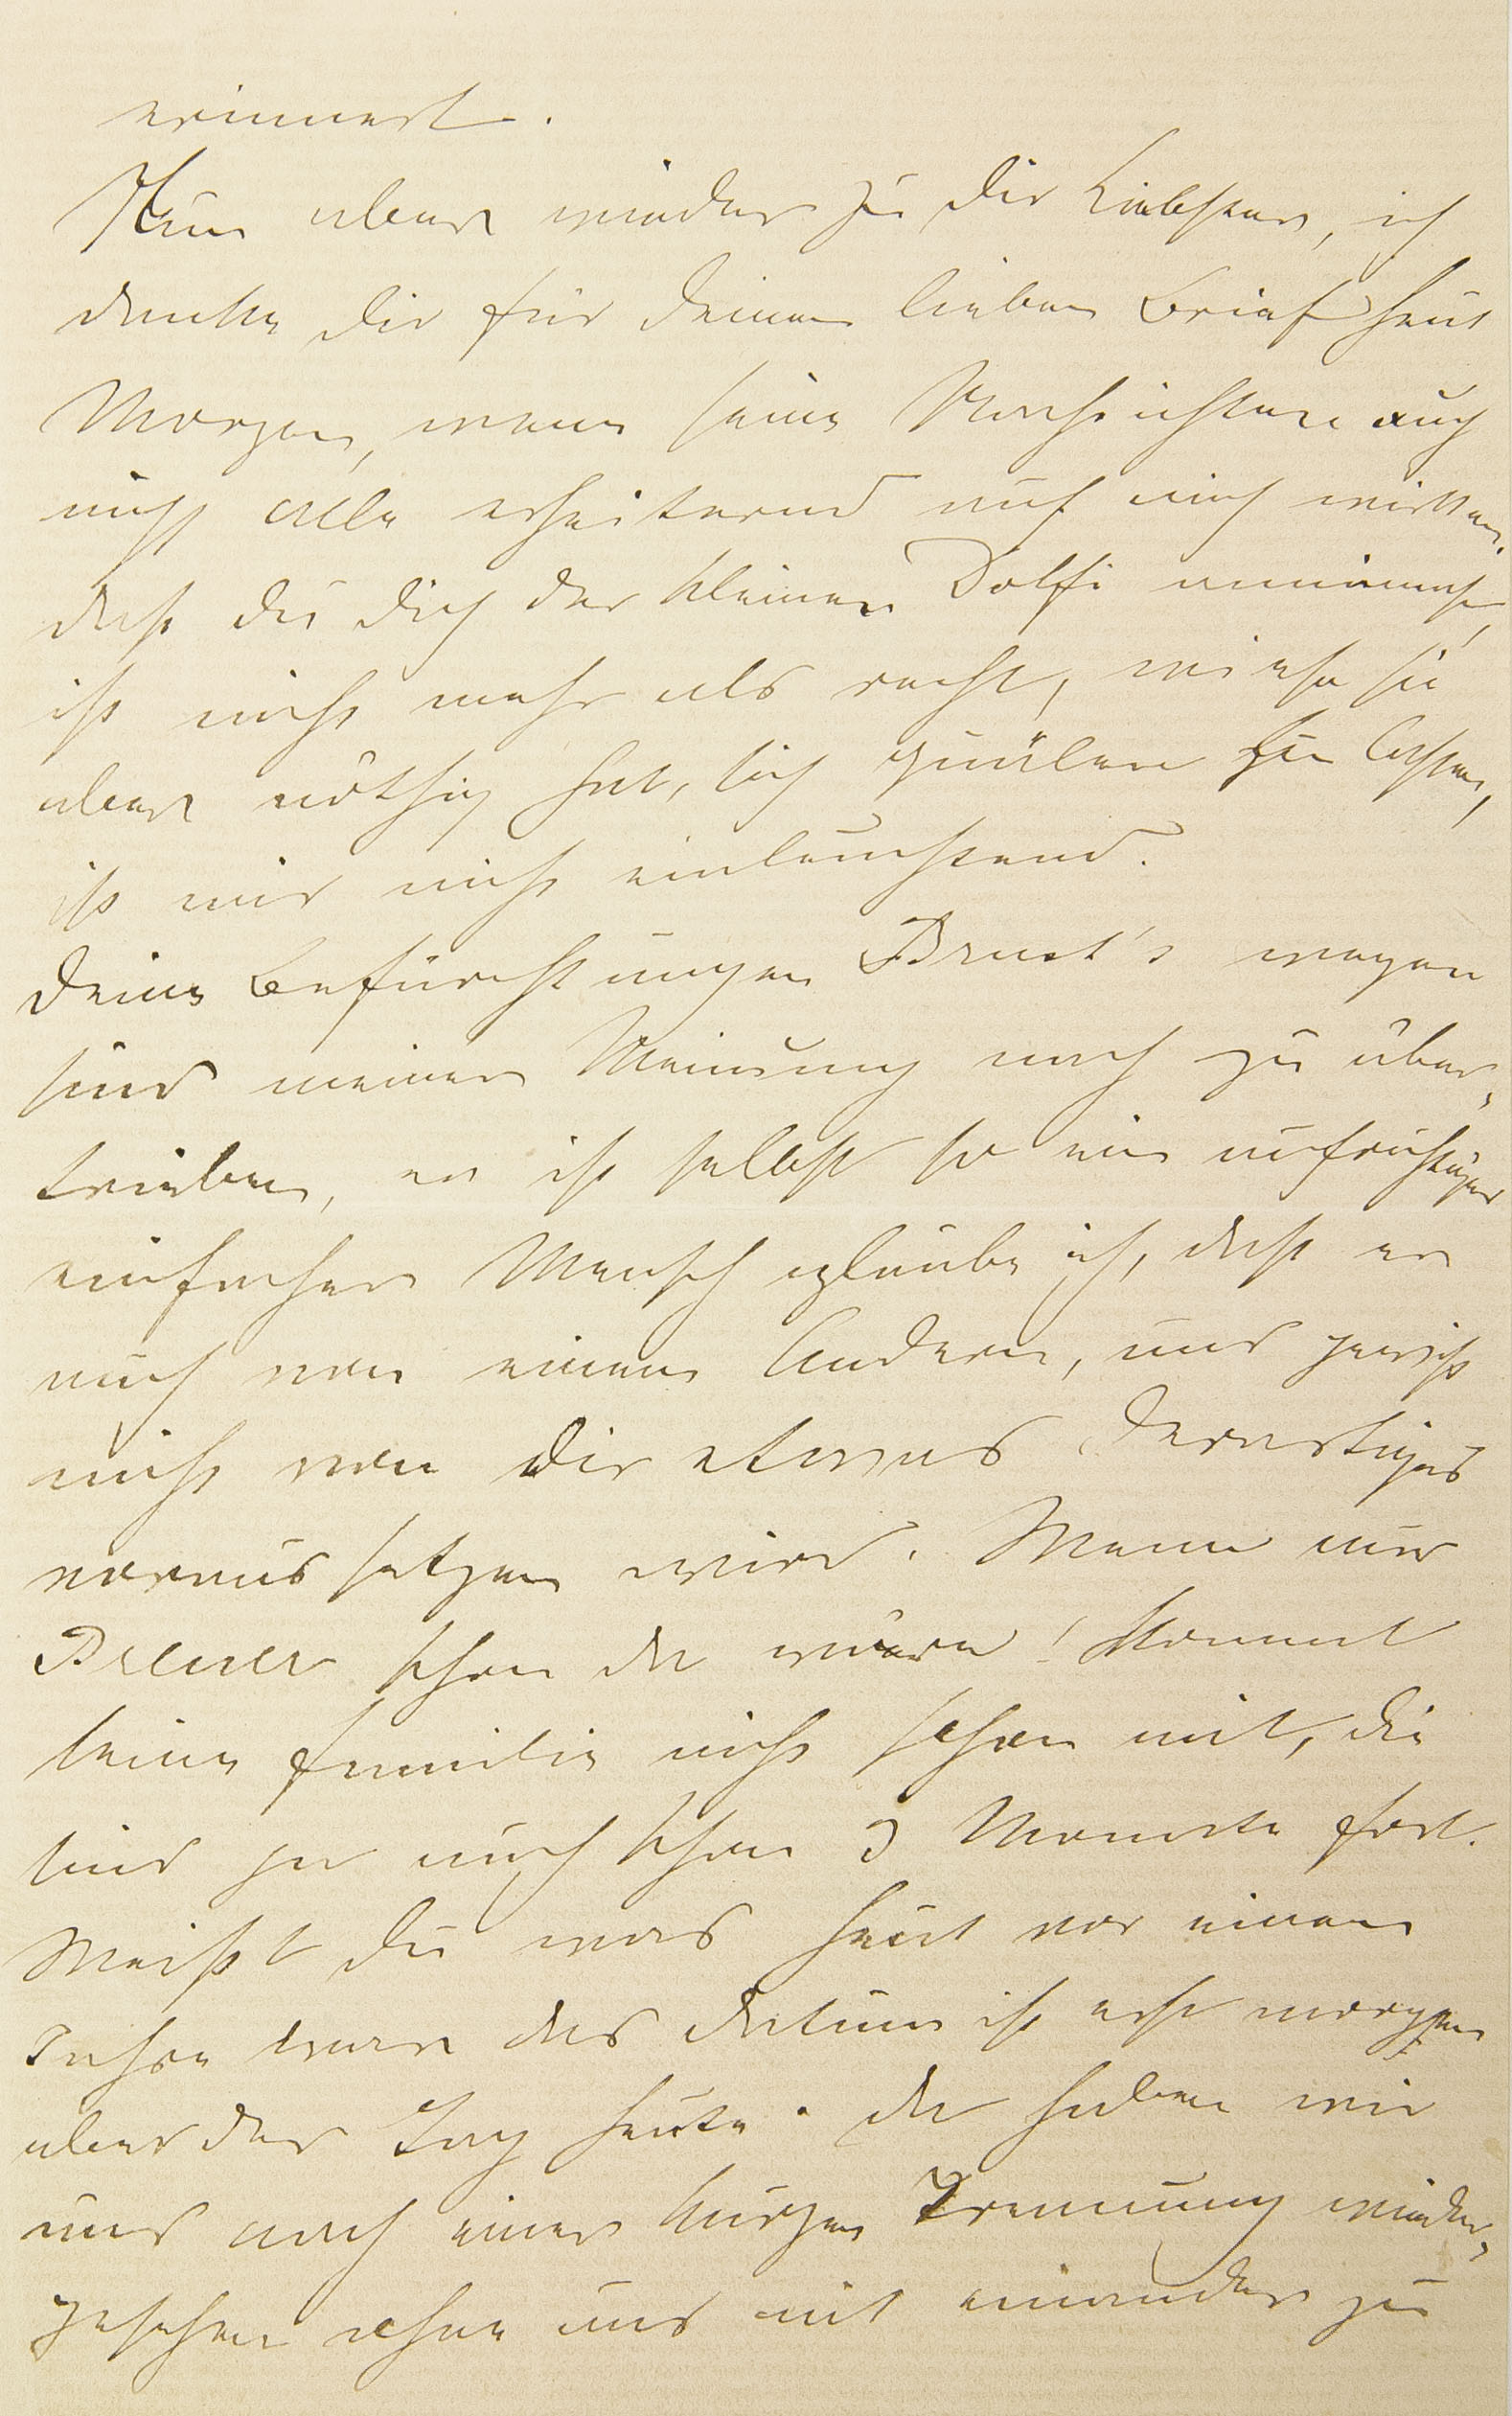 erinnert.
Nun aber wieder zu Dir Liebster, ich
danke Dir für Deinen lieben Brief heut
Morgen, wenn seine Nachrichten auch
nicht alle erheiternd auf mich wirkten.
daß du Dich der kleinen Dolfi annimmst,
ist nicht mehr als recht, wieso sie
aber nöthig hat, sich quälen zu lassen,
ist mir nicht einleuchtend.
Deine Befürchtungen Brust's wegen
sind meiner Meinung nach zu über-
trieben, er ist selbst so ein aufrichtiger
einfacher Mensch glaube ich, daß er
auch von einem Andern, und gewiß
nicht von Dir etwas Derartiges
voraus setzen wird. Wenn nur
Breuer schon da wäre! Kommt
seine Familie nicht schon mit, die
sind ja auch schon 3 Monate fort.
Weißt du was heut vor einem
Jahre war das Datum ist erst morgen
aber der Tag heute. da haben wir
uns nach einer kurzen Trennung wieder-
gesehen ohne uns mit einander zu